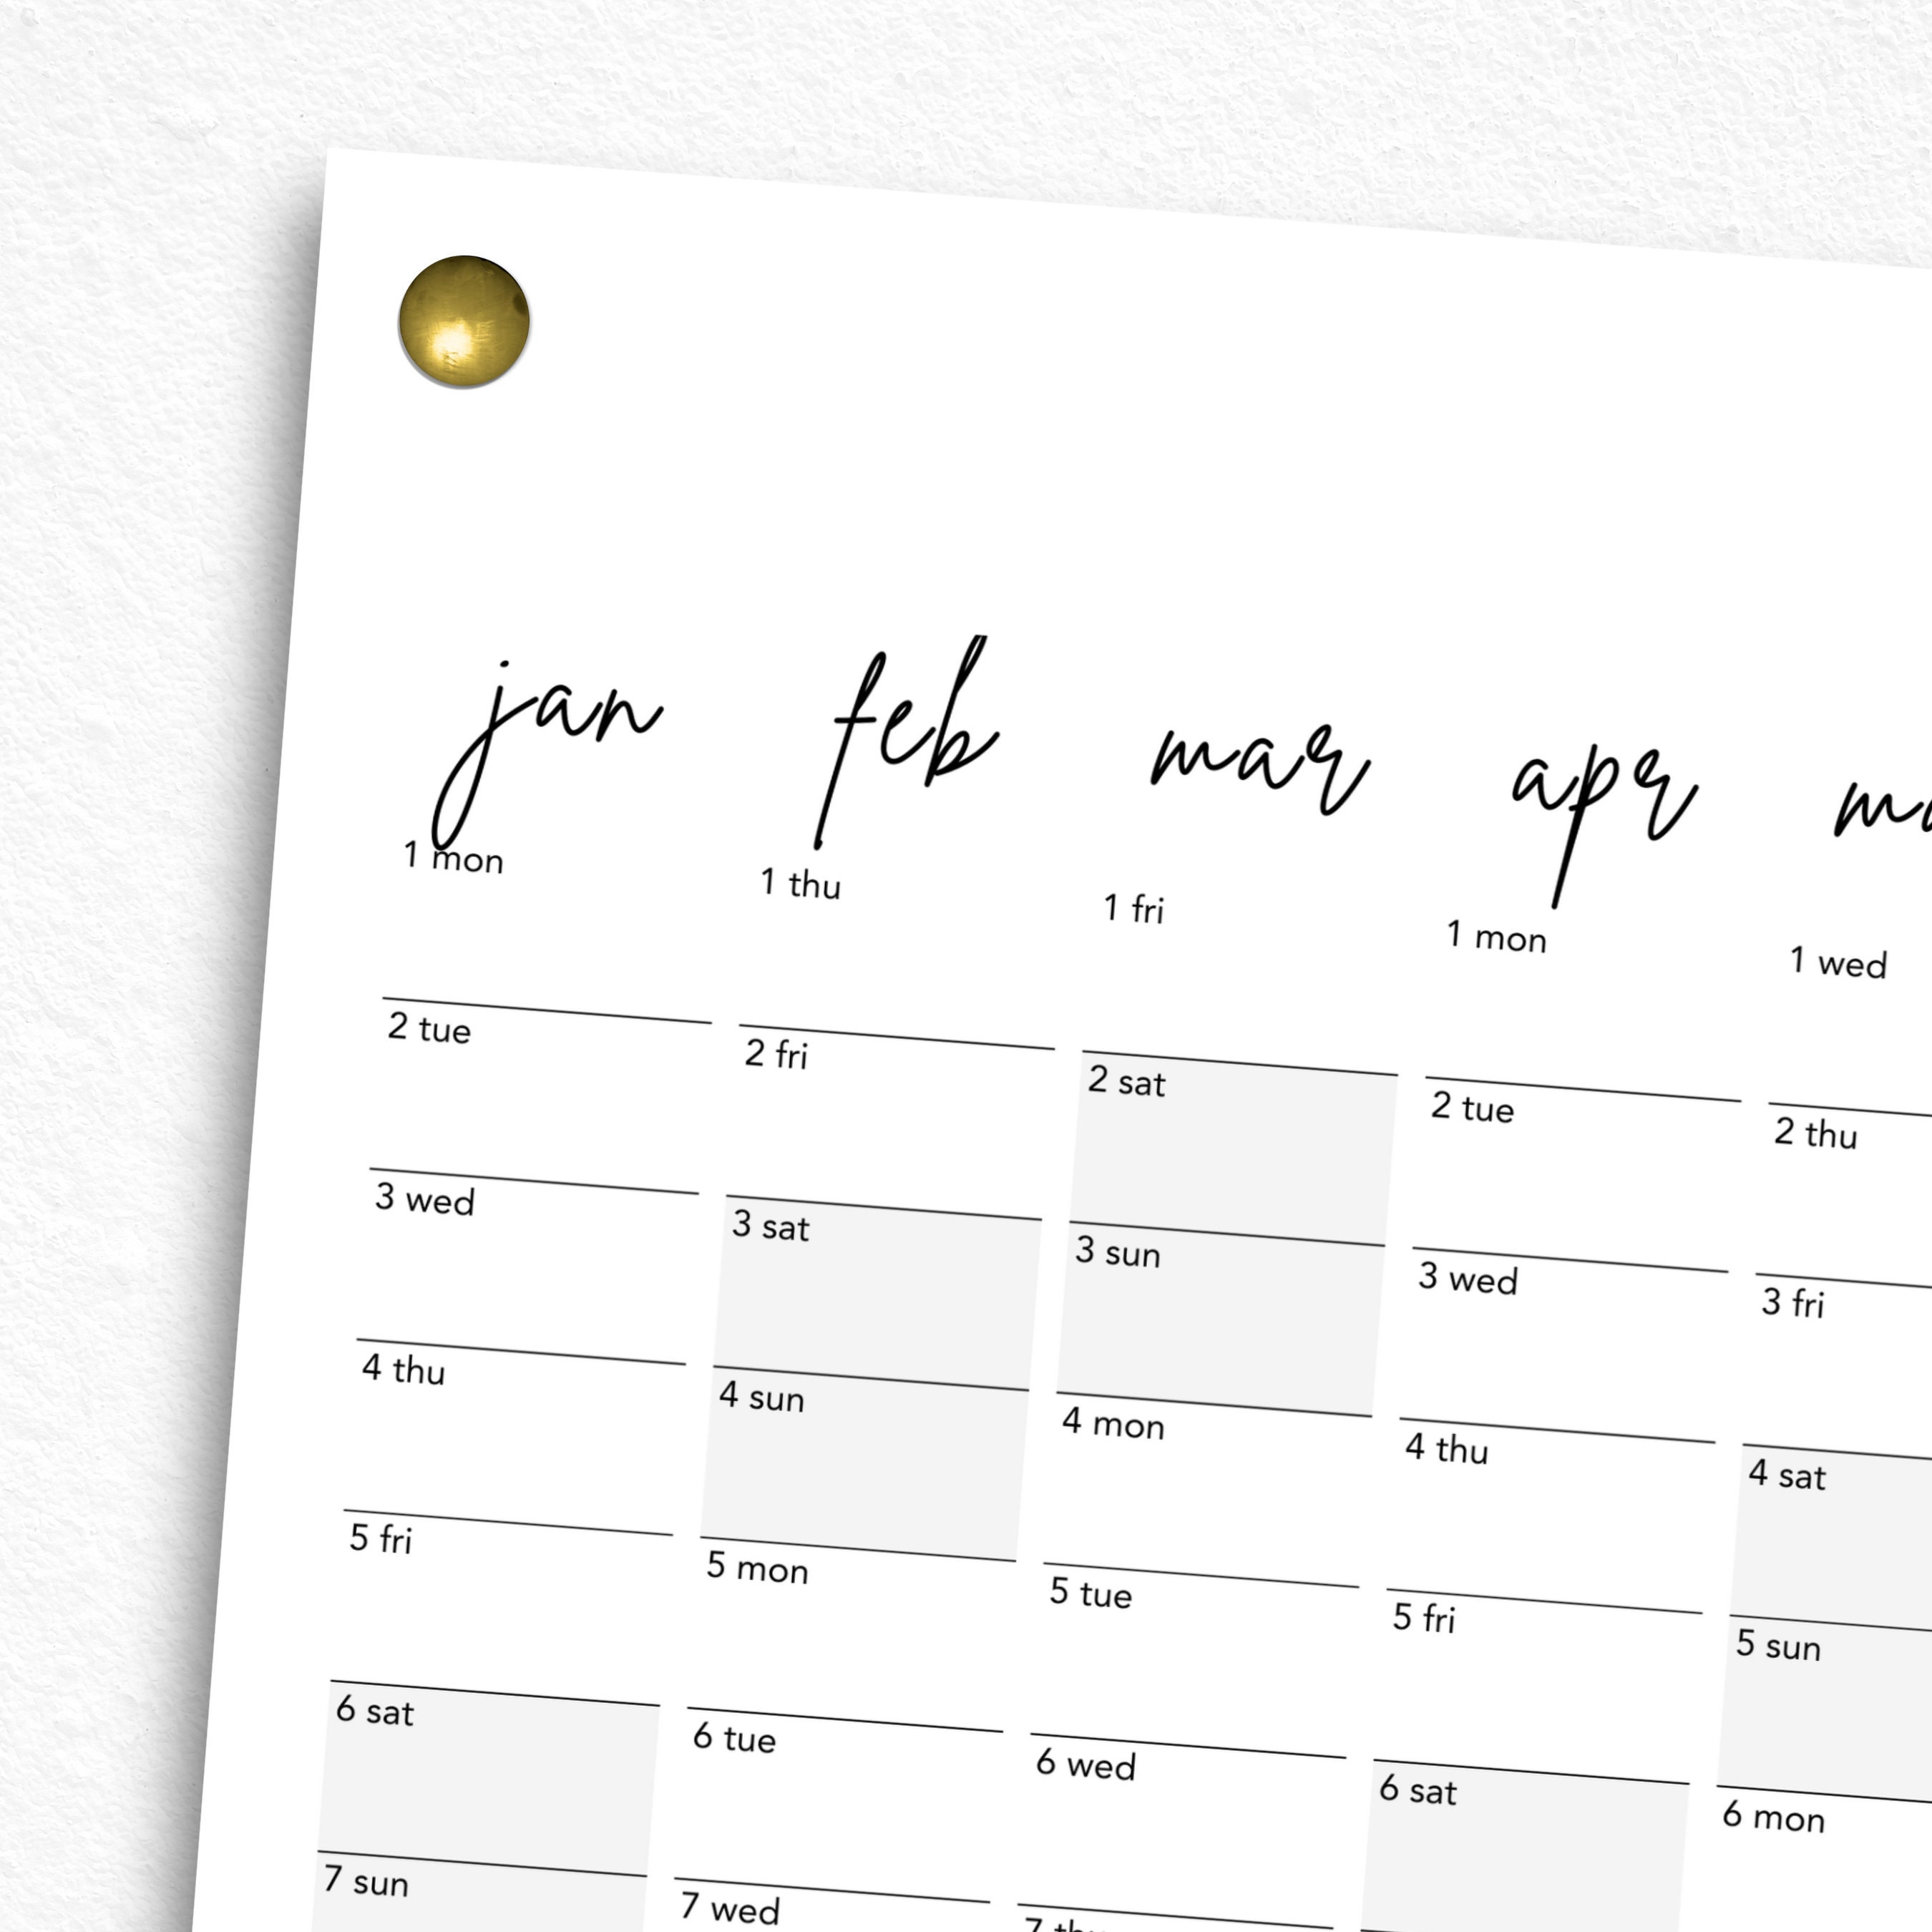 jan feb mar apr
1 mon 1 thu 1 fri 1 mon 1 wed
2 tue 2 fri 2 sat 2 tue 2 thu
3 wed 3 sat 3 sun 3 wed 3 fri
4 thu 4 sun 4 mon 4 thu 4 sat
5 fri 5 mon 5 tue 5 fri 5 sun
6 sat 6 tue 6 wed 6 sat 6 mon
7 sun 7 wed 7